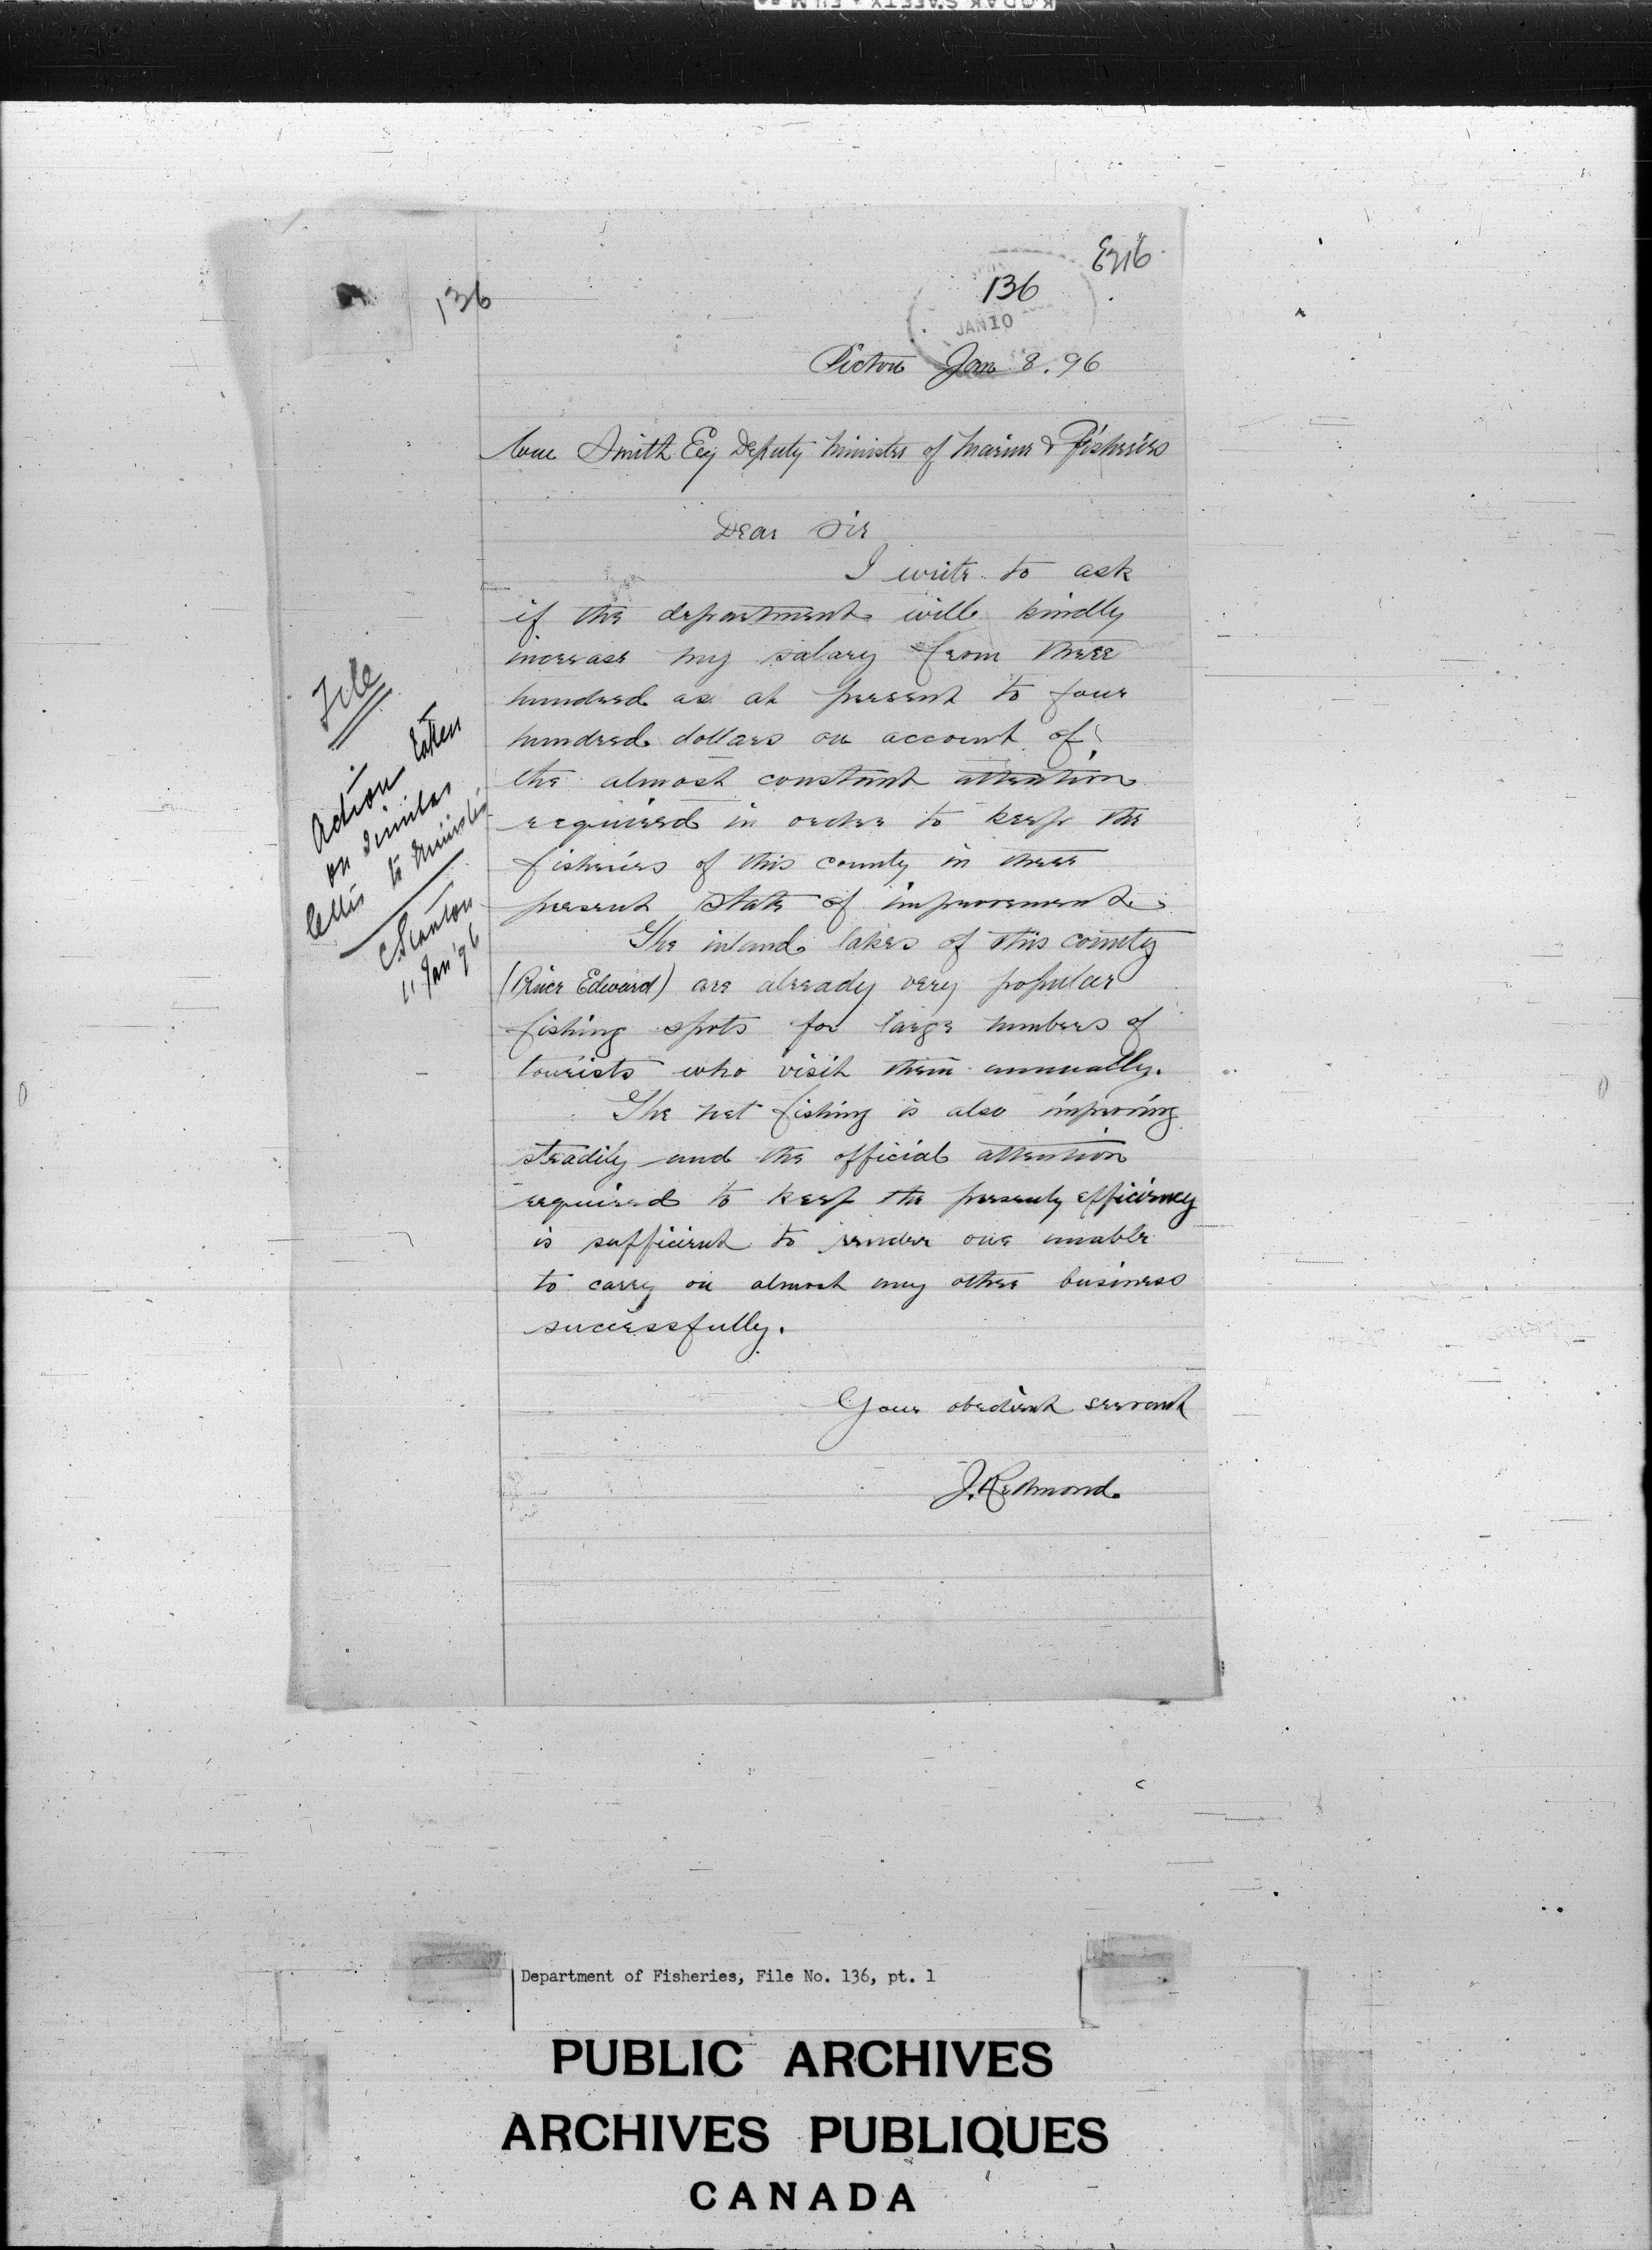 136
136
JAN 10
Picton Jan 8. 96
Wm Smith Esq Deputy Minister of Marine & Fisheries
Dear Sir
I write to ask
if the department will kindly
increase my salary from three
hundred as at present to four
hundred dollars on account of
the almost constant attention
required in order to keep the
fisheries of this county in there
present state of improvement.
The inland lakes of this county
(Prince Edward) are already very popular
fishing spots for large numbers of
tourists who visit them annually.
The net fishing is also improving
steadily and the official attention
required to keep the present efficiency
is sufficient to render one unable
to carry on almost any other business
successfully.
Your obedient servant
J. Redmond.
File
Action taken
on similar
letter to Minister
C Stanton
11 Jan '96
Department of Fisheries, File No. 136, pt. 1
PUBLIC ARCHIVES
ARCHIVES PUBLIQUES
CANADA